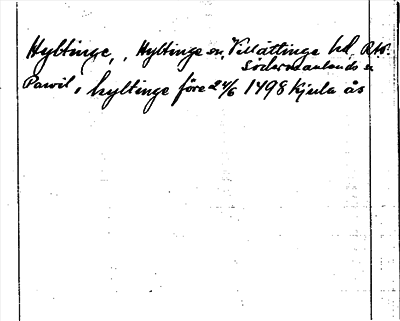 Hyltinge, , Hyltinge sn, Villåttinge hd, RAP.
Södermanlands
Pawil, hyltinge före 24/6 1498 Kjula ås